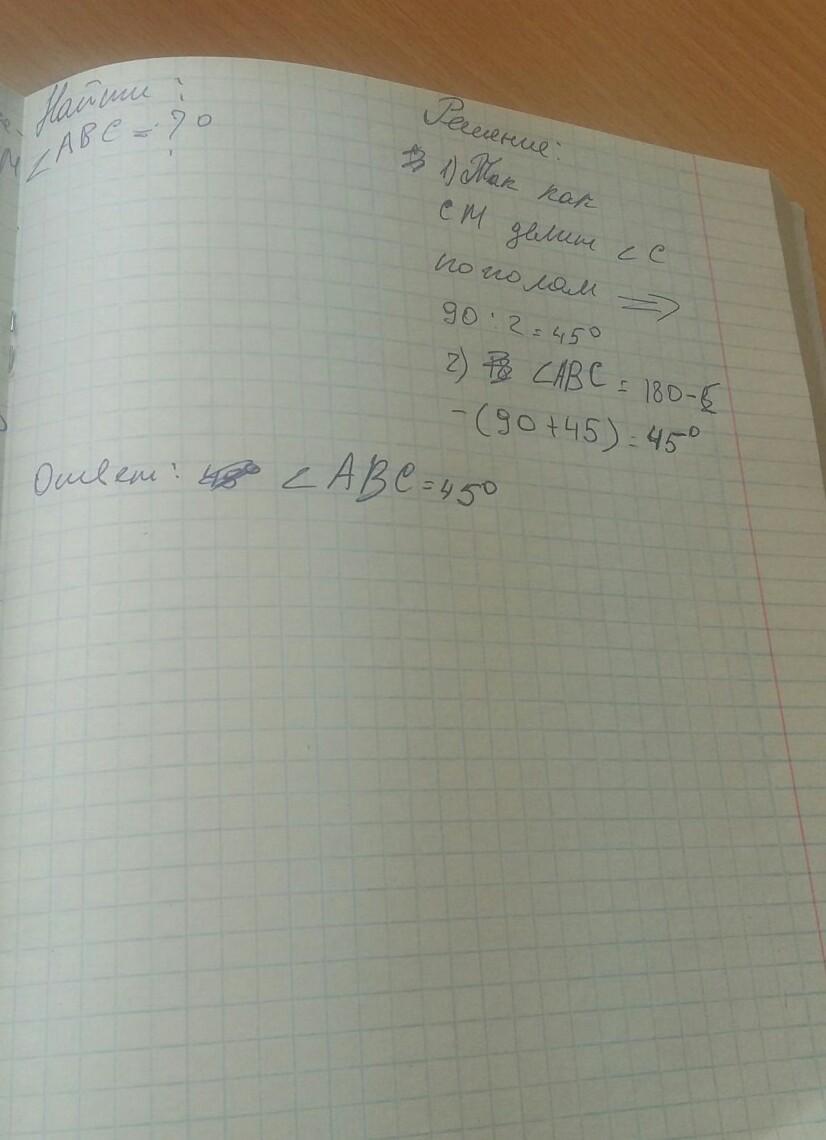 Найти:
∠ABC = ?°
Решение:
1) Так как
CM делит ∠C
пополам ⇒
90 : 2 = 45°
2) ∠ABC = 180-
-(90+45) = 45°
Ответ: ∠ABC = 45°